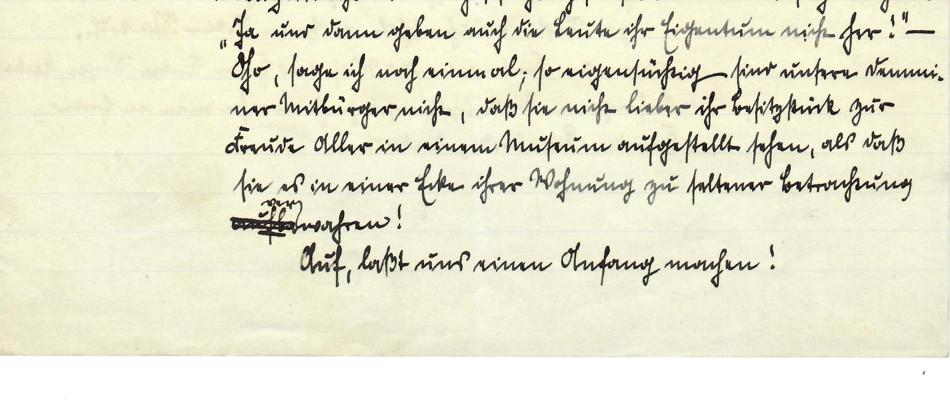 „Ja und dann geben auch die Leute ihr Eigentum nicht her!“ —
Oho, sage ich noch einmal; so eigensüchtig sind unsere Demmi-
ner Mitbürger nicht, daß sie nicht lieber ihr Besitzstück zur
Freude Aller in einem Museum aufgestellt sehen, als daß
sie es in einer Ecke ihrer Wohnung zu seltener Betrachtung
verwahren!
Auf, laßt uns einen Anfang machen!